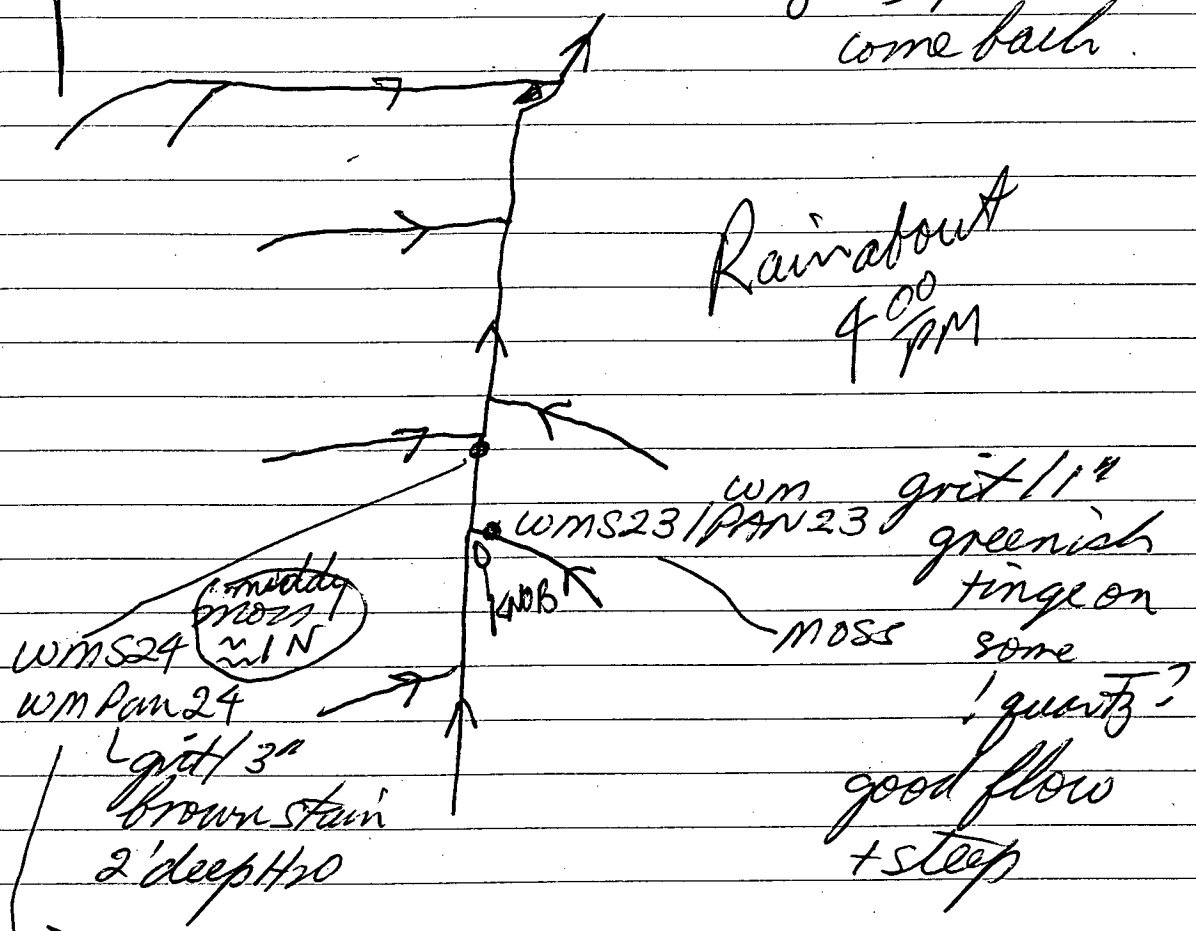 come back.
Rain about
4 00 PM
WMS23 / WM PAN23
grit / 1"
greenish
tinge on
some
! quartz ?
good flow
+ steep
MOSS
KNOB
muddy
moss
≈ 1 N
WMS24
WM Pan 24
grit / 3"
brown stain
2' deep H2O